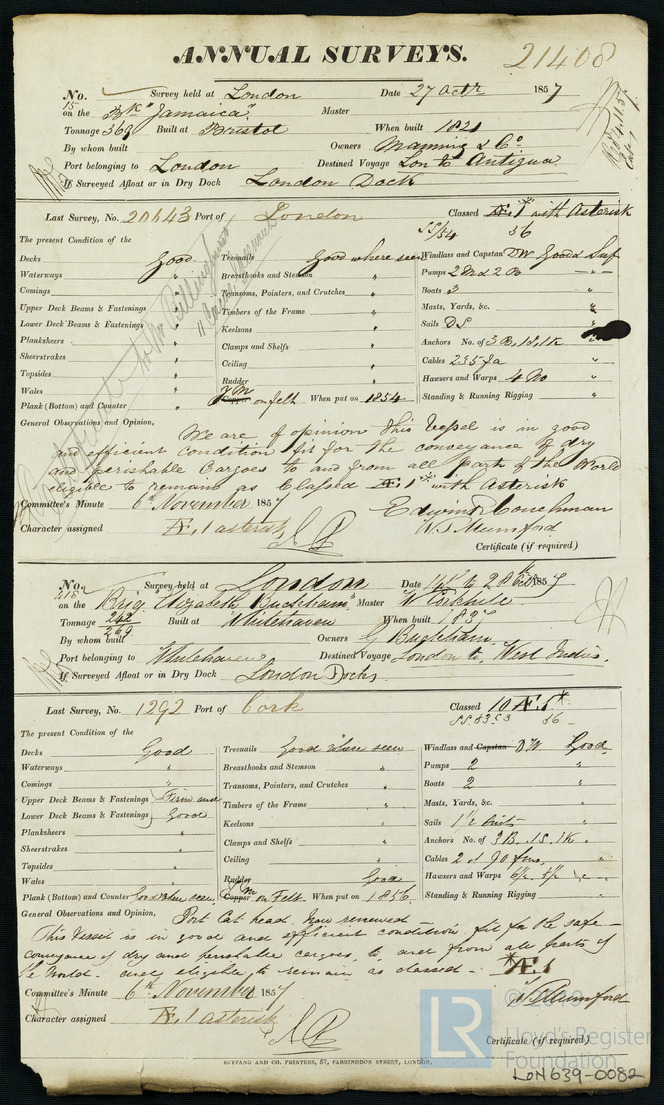 ANNUAL SURVEYS. 21408
No. 15 Survey held at London Date 27 Octr 1857
on the Bk "Jamaica" Master
Tonnage 369 Built at Bristol When built 1821
By whom built Owners Manning & Co
Port belonging to London Destined Voyage Lon to Antigua
If Surveyed Afloat or in Dry Dock London Dock
Last Survey, No. 20643 Port of London Classed Æ 1* with Asterisk
SS/54 56
The present Condition of the
Decks Good Treenails Good where seen Windlass and Capstan DW Good & Suf
Waterways " Breasthooks and Stemson " Pumps 2 M & 2 B
Comings " Transoms, Pointers, and Crutches " Boats 3 "
Upper Deck Beams & Fastenings " Timbers of the Frame " Masts, Yards, &c. "
Lower Deck Beams & Fastenings " Keelsons " Sails DS "
Planksheers " Clamps and Shelfs " Anchors No. of 3 B, 1S, 1K
Sheerstrakes " Ceiling " Cables 235 fa "
Topsides " Rudder " Hawsers and Warps 4 No "
Wales " Y M Copper on felt When put on 1854 Standing & Running Rigging "
Plank (Bottom) and Counter "
General Observations and Opinion, We are of opinion this Vessel is in good
and efficient condition fit for the conveyance of dry
and perishable Cargoes to and from all parts of the World
eligible to remain as Classed Æ 1 with Asterisk
Committee's Minute 6th November 1857 Edwin Couchman
Character assigned Æ, 1 asterisk W S Mumford
Certificate (if required)
No. 418 Survey held at London Date 14th to 28th Octr 1857
on the Brig "Elizabeth Buckham" Master W
Tonnage 242 269 Built at Whitehaven When built 1837
By whom built Owners G Buckham
Port belonging to Whitehaven Destined Voyage London to West Indies.
If Surveyed Afloat or in Dry Dock London Docks
Last Survey, No. 1292 Port of Cork Classed 10 Æ 1*
56
The present Condition of the
Decks Good Treenails Good where seen Windlass and Capstan DW Good
Waterways " Breasthooks and Stemson " Pumps 2 "
Comings " Transoms, Pointers, and Crutches " Boats 2 "
Upper Deck Beams & Fastenings Firm and Timbers of the Frame " Masts, Yards, &c. "
Lower Deck Beams & Fastenings Good Keelsons " Sails 1½ Suits "
Planksheers " Clamps and Shelfs " Anchors No. of 3 B. 1S. 1K "
Sheerstrakes " Ceiling " Cables 2 of 90 fms. "
Topsides " Rudder Good Hawsers and Warps
Wales " Y M Copper on Felt When put on 1856 Standing & Running Rigging "
Plank (Bottom) and Counter Good where seen
General Observations and Opinion, Port Cat head Now renewed
This Vessel is in good and efficient condition, fit for the safe
conveyance of dry and perishable cargoes, to and from all parts of
the World. and eligible to remain as classed - *Æ 1
Committee's Minute 6th November 1857 W S Mumford
Character assigned Æ, 1 asterisk
Certificate (if required)
SEYFANG AND CO. PRINTERS, 57, FARRINGDON STREET, LONDON.
LR © 2019 Lloyd's Register Foundation
LON639-0082